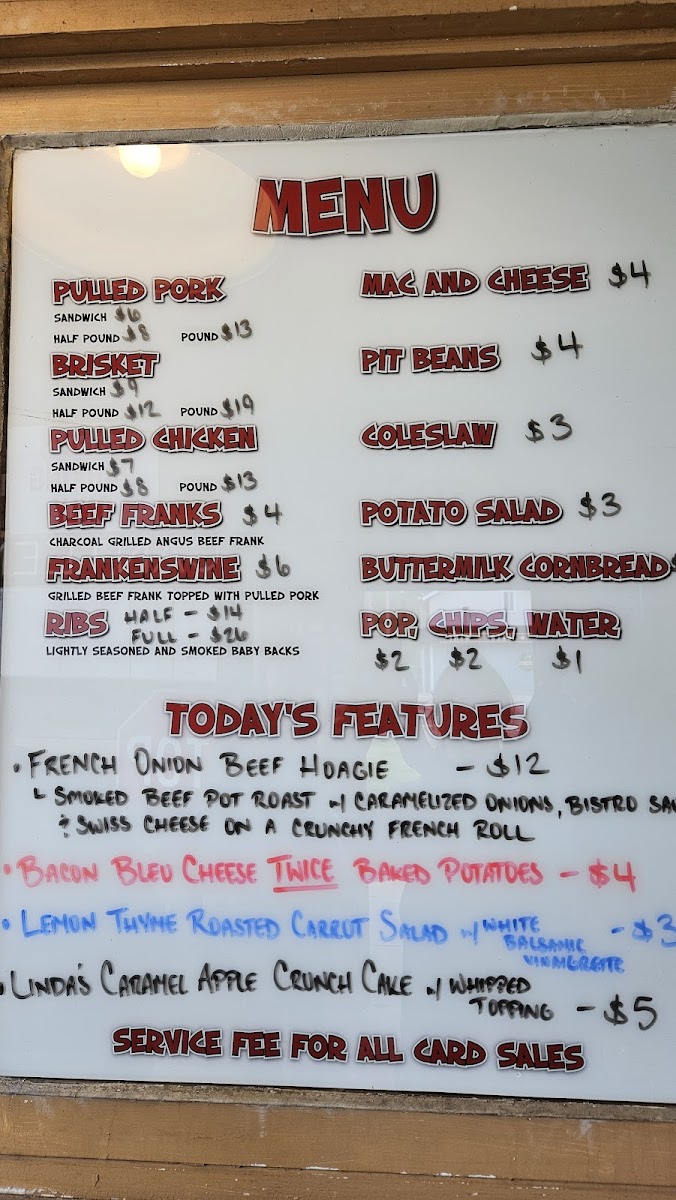 MENU
PULLED PORK
SANDWICH $6
HALF POUND $8 POUND $13
BRISKET
SANDWICH $9
HALF POUND $12 POUND $19
PULLED CHICKEN
SANDWICH $7
HALF POUND $8 POUND $13
BEEF FRANKS $4
CHARCOAL GRILLED ANGUS BEEF FRANK
FRANKENSWINE $6
GRILLED BEEF FRANK TOPPED WITH PULLED PORK
RIBS HALF - $14
FULL - $26
LIGHTLY SEASONED AND SMOKED BABY BACKS
MAC AND CHEESE $4
PIT BEANS $4
COLESLAW $3
POTATO SALAD $3
BUTTERMILK CORNBREAD
POP, CHIPS, WATER
$2 $2 $1
TODAY'S FEATURES
• FRENCH ONION BEEF HOAGIE - $12
SMOKED BEEF POT ROAST w/ CARAMELIZED ONIONS, BISTRO
& SWISS CHEESE ON A CRUNCHY FRENCH ROLL
• BACON BLEU CHEESE TWICE BAKED POTATOES - $4
• LEMON THYME ROASTED CARROT SALAD w/ WHITE - $3
BALSAMIC
VINAIGRETTE
• LINDA'S CARAMEL APPLE CRUNCH CAKE w/ WHIPPED
TOPPING - $5
SERVICE FEE FOR ALL CARD SALES